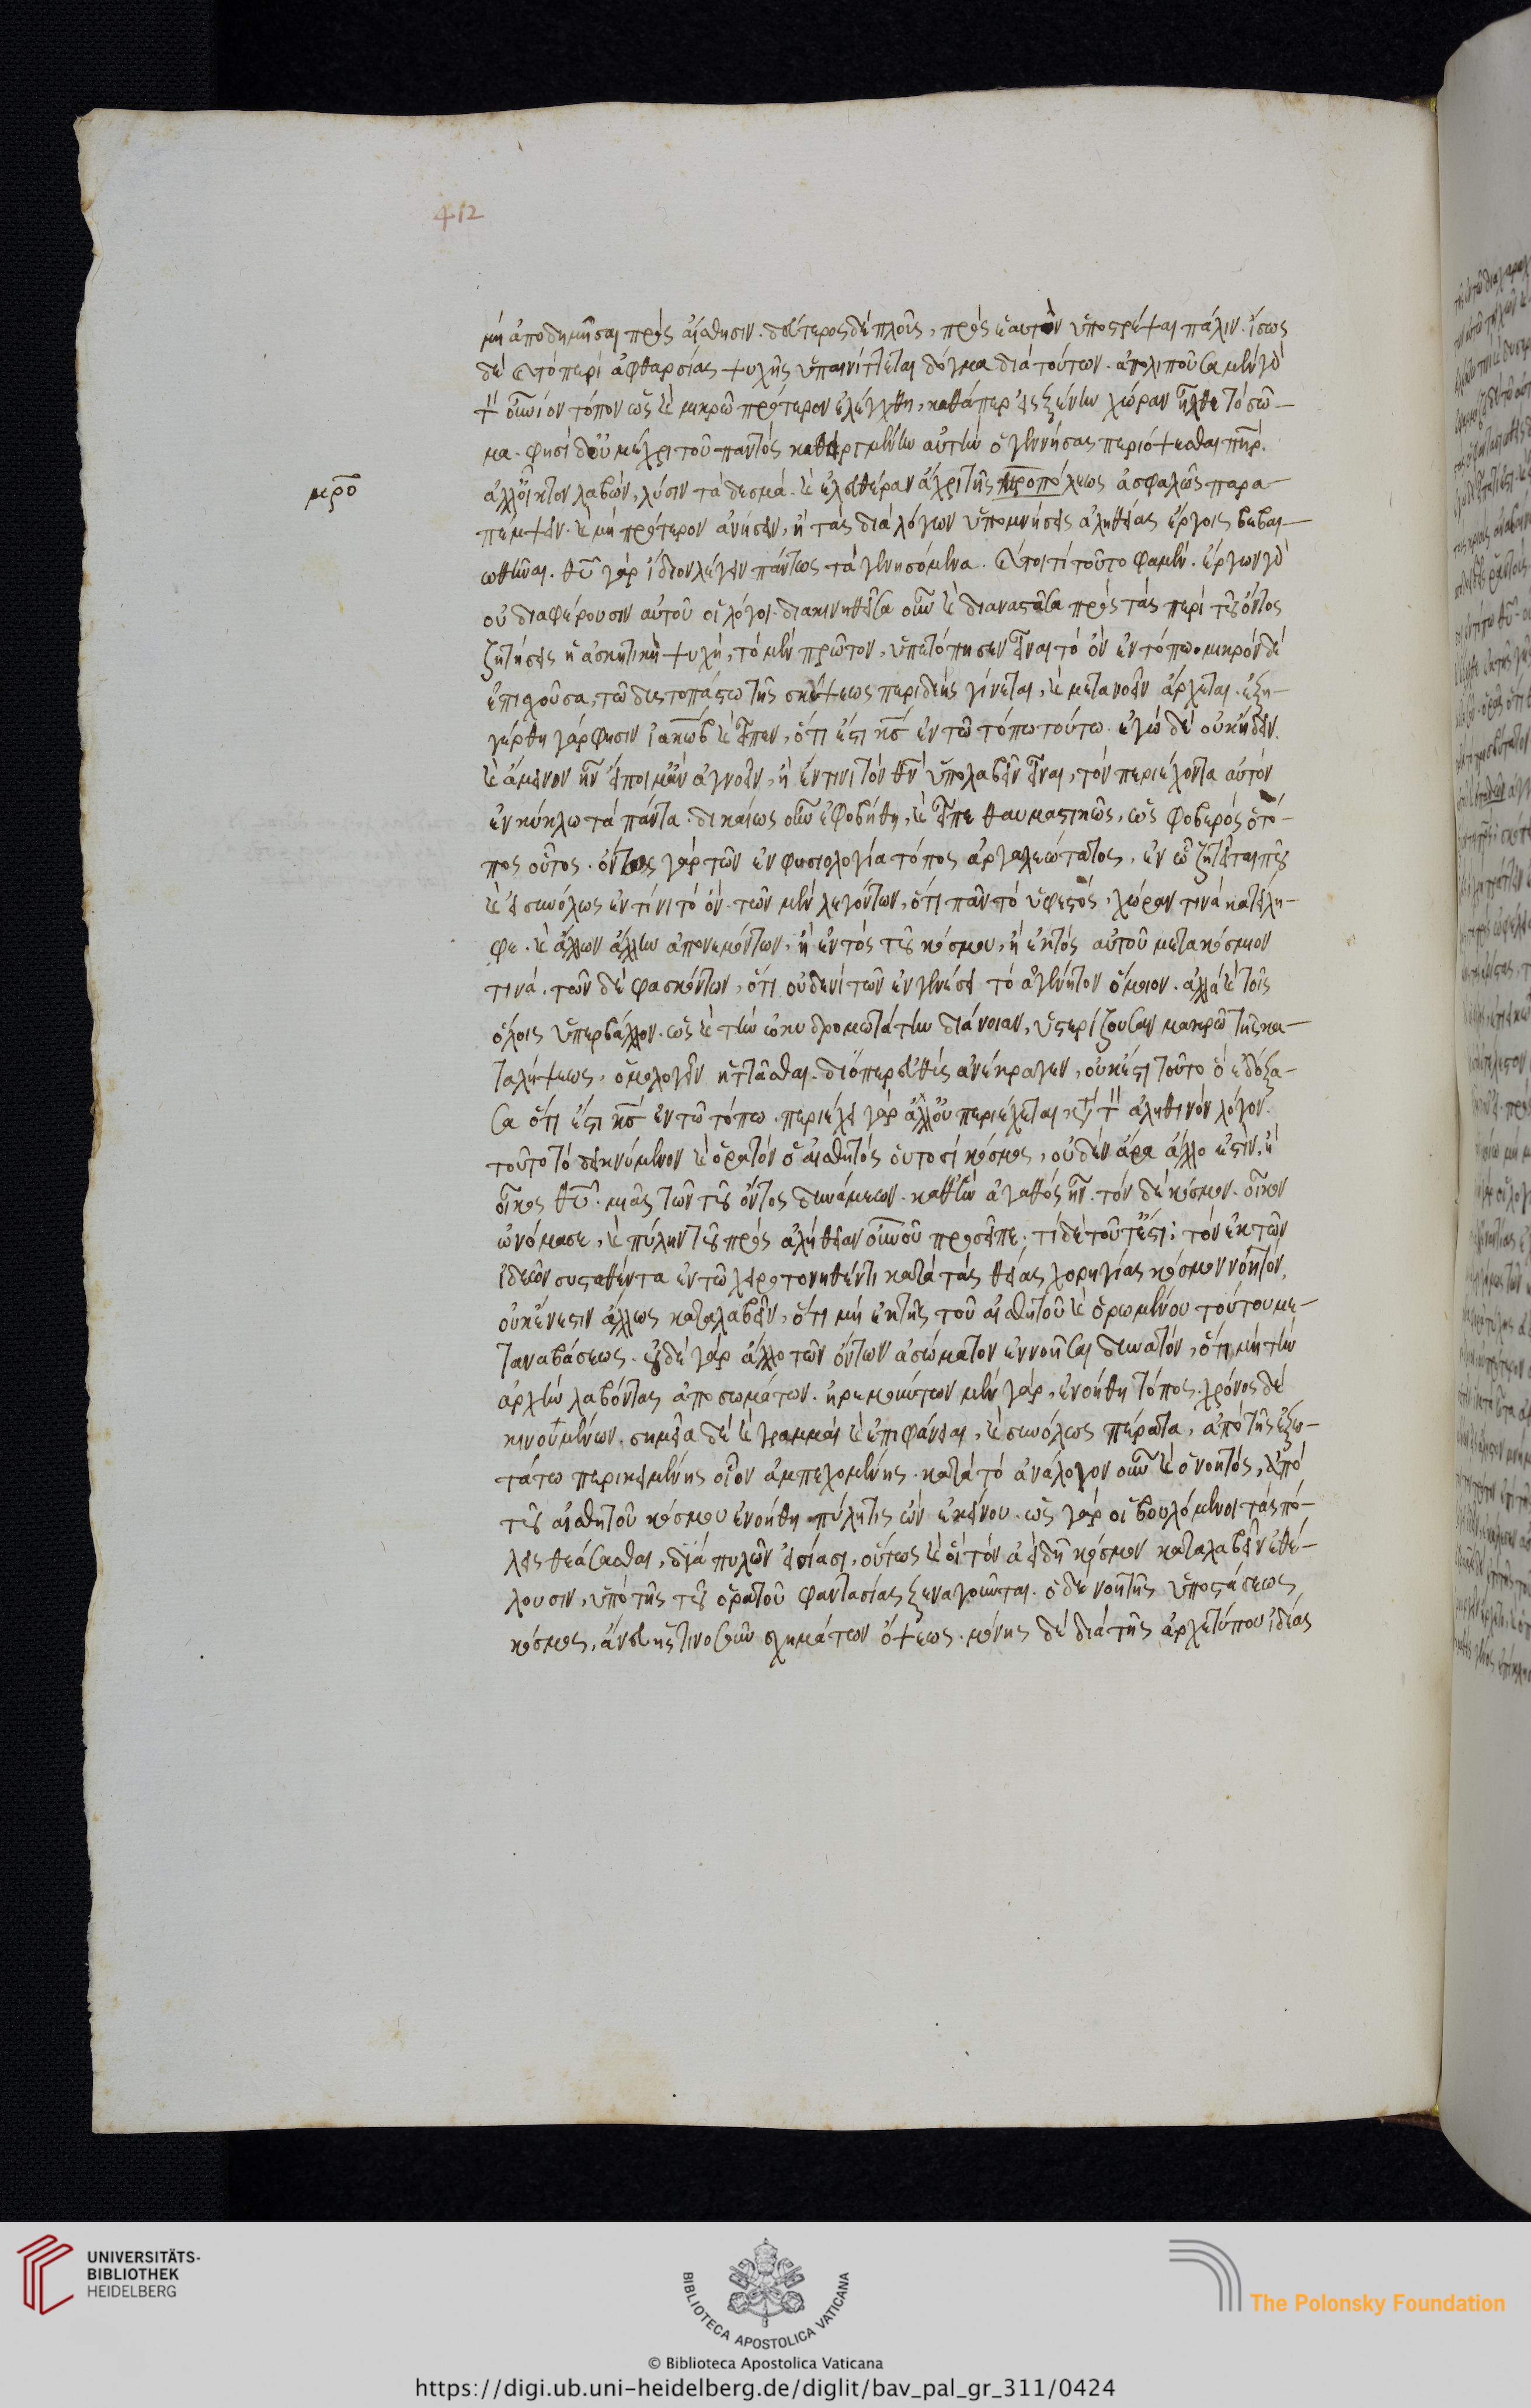 412
μὴ ἀποδημῆσαι πρὸς αἴσθησιν. δεύτερος δὲ πλοῦς, πρὸς ἑαυτὸν ὑποστρέψαι πάλιν. ἴσως
δὲ καὶ τὸ περὶ ἀφθαρσίας ψυχῆς ὑπαινίττεται δόγμα διὰ τούτων. ἀπολιποῦσα μὲν γὰρ
τὸν οὐράνιον τόπον ὡς καὶ μικρῷ πρότερον ἐλέχθη, καθάπερ εἰς ξένην χώραν ἦλθε τὸ σῶ-
μα. φησὶ δ' οὐ μέχρι τοῦ παντὸς καθειργμένην αὐτὴν ὁ γεννήσας περιόψεσθαι πατήρ.
ἀλλ' οἶκτον λαβών, λύσειν τὰ δεσμά. καὶ ἐλευθέραν ἄχρι τῆς μητροπόλεως ἀσφαλῶς παρα-
μητρο
πέμψειν. καὶ μὴ πρότερον ἀνήσειν, ἢ τὰς διὰ λόγων ὑποσχέσεις ἀληθείας ἔργοις βεβαι-
ωθῆναι. θεοῦ γὰρ ἴδιον λέγειν πάντως τὰ γενησόμενα. καίτοι τί τοῦτο φαμέν. ἔργων γὰρ
οὐ διαφέρουσιν αὐτοῦ οἱ λόγοι. διακινηθεῖσα οὖν καὶ διαναστᾶσα πρὸς τὰς περὶ τοῦ ὄντος
ζητήσεις ἡ ἀσκητικὴ ψυχή, τὸ μὲν πρῶτον, ὑπετόπησεν εἶναι τὸ ὂν ἐν τόπῳ. μικρὸν δὲ
ἐπισχοῦσα, τῷ δυστοπάστῳ τῆς σκέψεως περιδεὴς γίνεται, καὶ μετανοεῖν ἄρχεται. ἐξη-
γέρθη γάρ φησιν ἰακὼβ καὶ εἶπεν, ὅτι ἔστι κύριος ἐν τῷ τόπῳ τούτῳ. ἐγὼ δὲ οὐκ ᾔδειν.
καὶ ἄμεινον ἦν εἴποιμ' ἂν ἀγνοεῖν, ἢ ἔν τινι τὸν θεὸν ὑπολαβεῖν εἶναι, τὸν περιέχοντα αὐτὸν
ἐν κύκλῳ τὰ πάντα. δικαίως οὖν ἐφοβήθη, καὶ εἶπε θαυμαστικῶς, ὡς φοβερὸς ὁ τό-
πος οὗτος. ὄντως γὰρ τῶν ἐν φυσιολογίᾳ τόπος ἀργαλεώτατος, ἐν ᾧ ζητεῖται ποῦ
καὶ εἰ συνόλως ἔν τινι τὸ ὄν. τῶν μὲν λεγόντων, ὅτι πᾶν τὸ ὑφεστός, χώραν τινὰ κατείλη-
φε. καὶ ἄλλων ἄλλην ἀπονεμόντων, ἢ ἐντὸς τοῦ κόσμου, ἢ ἐκτὸς αὐτοῦ μετακόσμιον
τινά. τῶν δὲ φασκόντων, ὅτι οὐδενὶ τῶν ἐν γενέσει τὸ ἀγένητον ὅμοιον. ἀλλὰ καὶ τοῖς
ὅλοις ὑπερβάλλον. ὡς καὶ τὴν ὠκυδρομωτάτην διάνοιαν, ὑστερίζουσαν μακρῷ τῆς κα-
ταλήψεως, ὁμολογεῖν ἡττᾶσθαι. διόπερ εὐθὺς ἀνέκραγεν, οὐκ ἔστι τοῦτο ὃ ἐδόξα-
σα ὅτι ἔστι κύριος ἐν τῷ τόπῳ. περιέχει γὰρ ἀλλ' οὐ περιέχεται κατὰ τὸν ἀληθινὸν λόγον.
τοῦτο τὸ δεικνύμενον καὶ ὁρατὸν ὁ αἰσθητὸς οὑτοσὶ κόσμος, οὐδὲν ἄρα ἄλλο ἐστίν, ἢ
οἶκος θεοῦ. μιᾶς τῶν τοῦ ὄντος δυνάμεων. καθ' ἣν ἀγαθὸς ἦν. τὸν δὲ κόσμον. οἶκον
ὠνόμασε, καὶ πύλην τοῦ πρὸς ἀλήθειαν οὐρανοῦ προσεῖπε. τί δὲ τοῦτ' ἔστι; τὸν ἐκ τῶν
ἰδεῶν συσταθέντα ἐν τῷ χειροτονηθέντι κατὰ τὰς θείας χορηγίας κόσμον νοητόν,
οὐκ ἔνεστιν ἄλλως καταλαβεῖν, ὅτι μὴ ἐκ τῆς τοῦ αἰσθητοῦ καὶ ὁρωμένου τούτου με-
ταναβάσεως. οὐδὲ γὰρ ἄλλο τῶν ὄντων ἀσώματον ἐννοῆσαι δυνατόν, ὅτι μὴ τὴν
ἀρχὴν λαβόντας ἀπὸ σωμάτων. ἠρεμούντων μὲν γάρ, ἐνοήθη τόπος. χρόνος δὲ
κινουμένων. σημεῖα δὲ καὶ γραμμαὶ καὶ ἐπιφάνειαι, καὶ συνόλως πέρατα, ἀπὸ τῆς ἐξω-
τάτω περικειμένης οἷον ἀμπεχομένης. κατὰ τὸ ἀνάλογον οὖν καὶ ὁ νοητός, ἀπὸ
τοῦ αἰσθητοῦ κόσμου ἐνοήθη πύλη τις ὢν ἐκείνου. ὡς γὰρ οἱ βουλόμενοι τὰς πό-
λεις θεάσασθαι, διὰ πυλῶν εἰσίασι, οὕτως καὶ οἱ τὸν ἀειδῆ κόσμον καταλαβεῖν ἐθέ-
λουσιν, ὑπὸ τῆς τοῦ ὁρατοῦ φαντασίας ξεναγοῦνται. ὁ δὲ νοητῆς ὑποστάσεως
κόσμος, ἄνευ ἧς τινοσοῦν σχημάτων ὄψεως. μόνης δὲ διὰ τῆς ἀρχετύπου ἰδέας
UNIVERSITÄTS-
BIBLIOTHEK
HEIDELBERG
BIBLIOTECA APOSTOLICA VATICANA
The Polonsky Foundation
© Biblioteca Apostolica Vaticana
https://digi.ub.uni-heidelberg.de/diglit/bav_pal_gr_311/0424